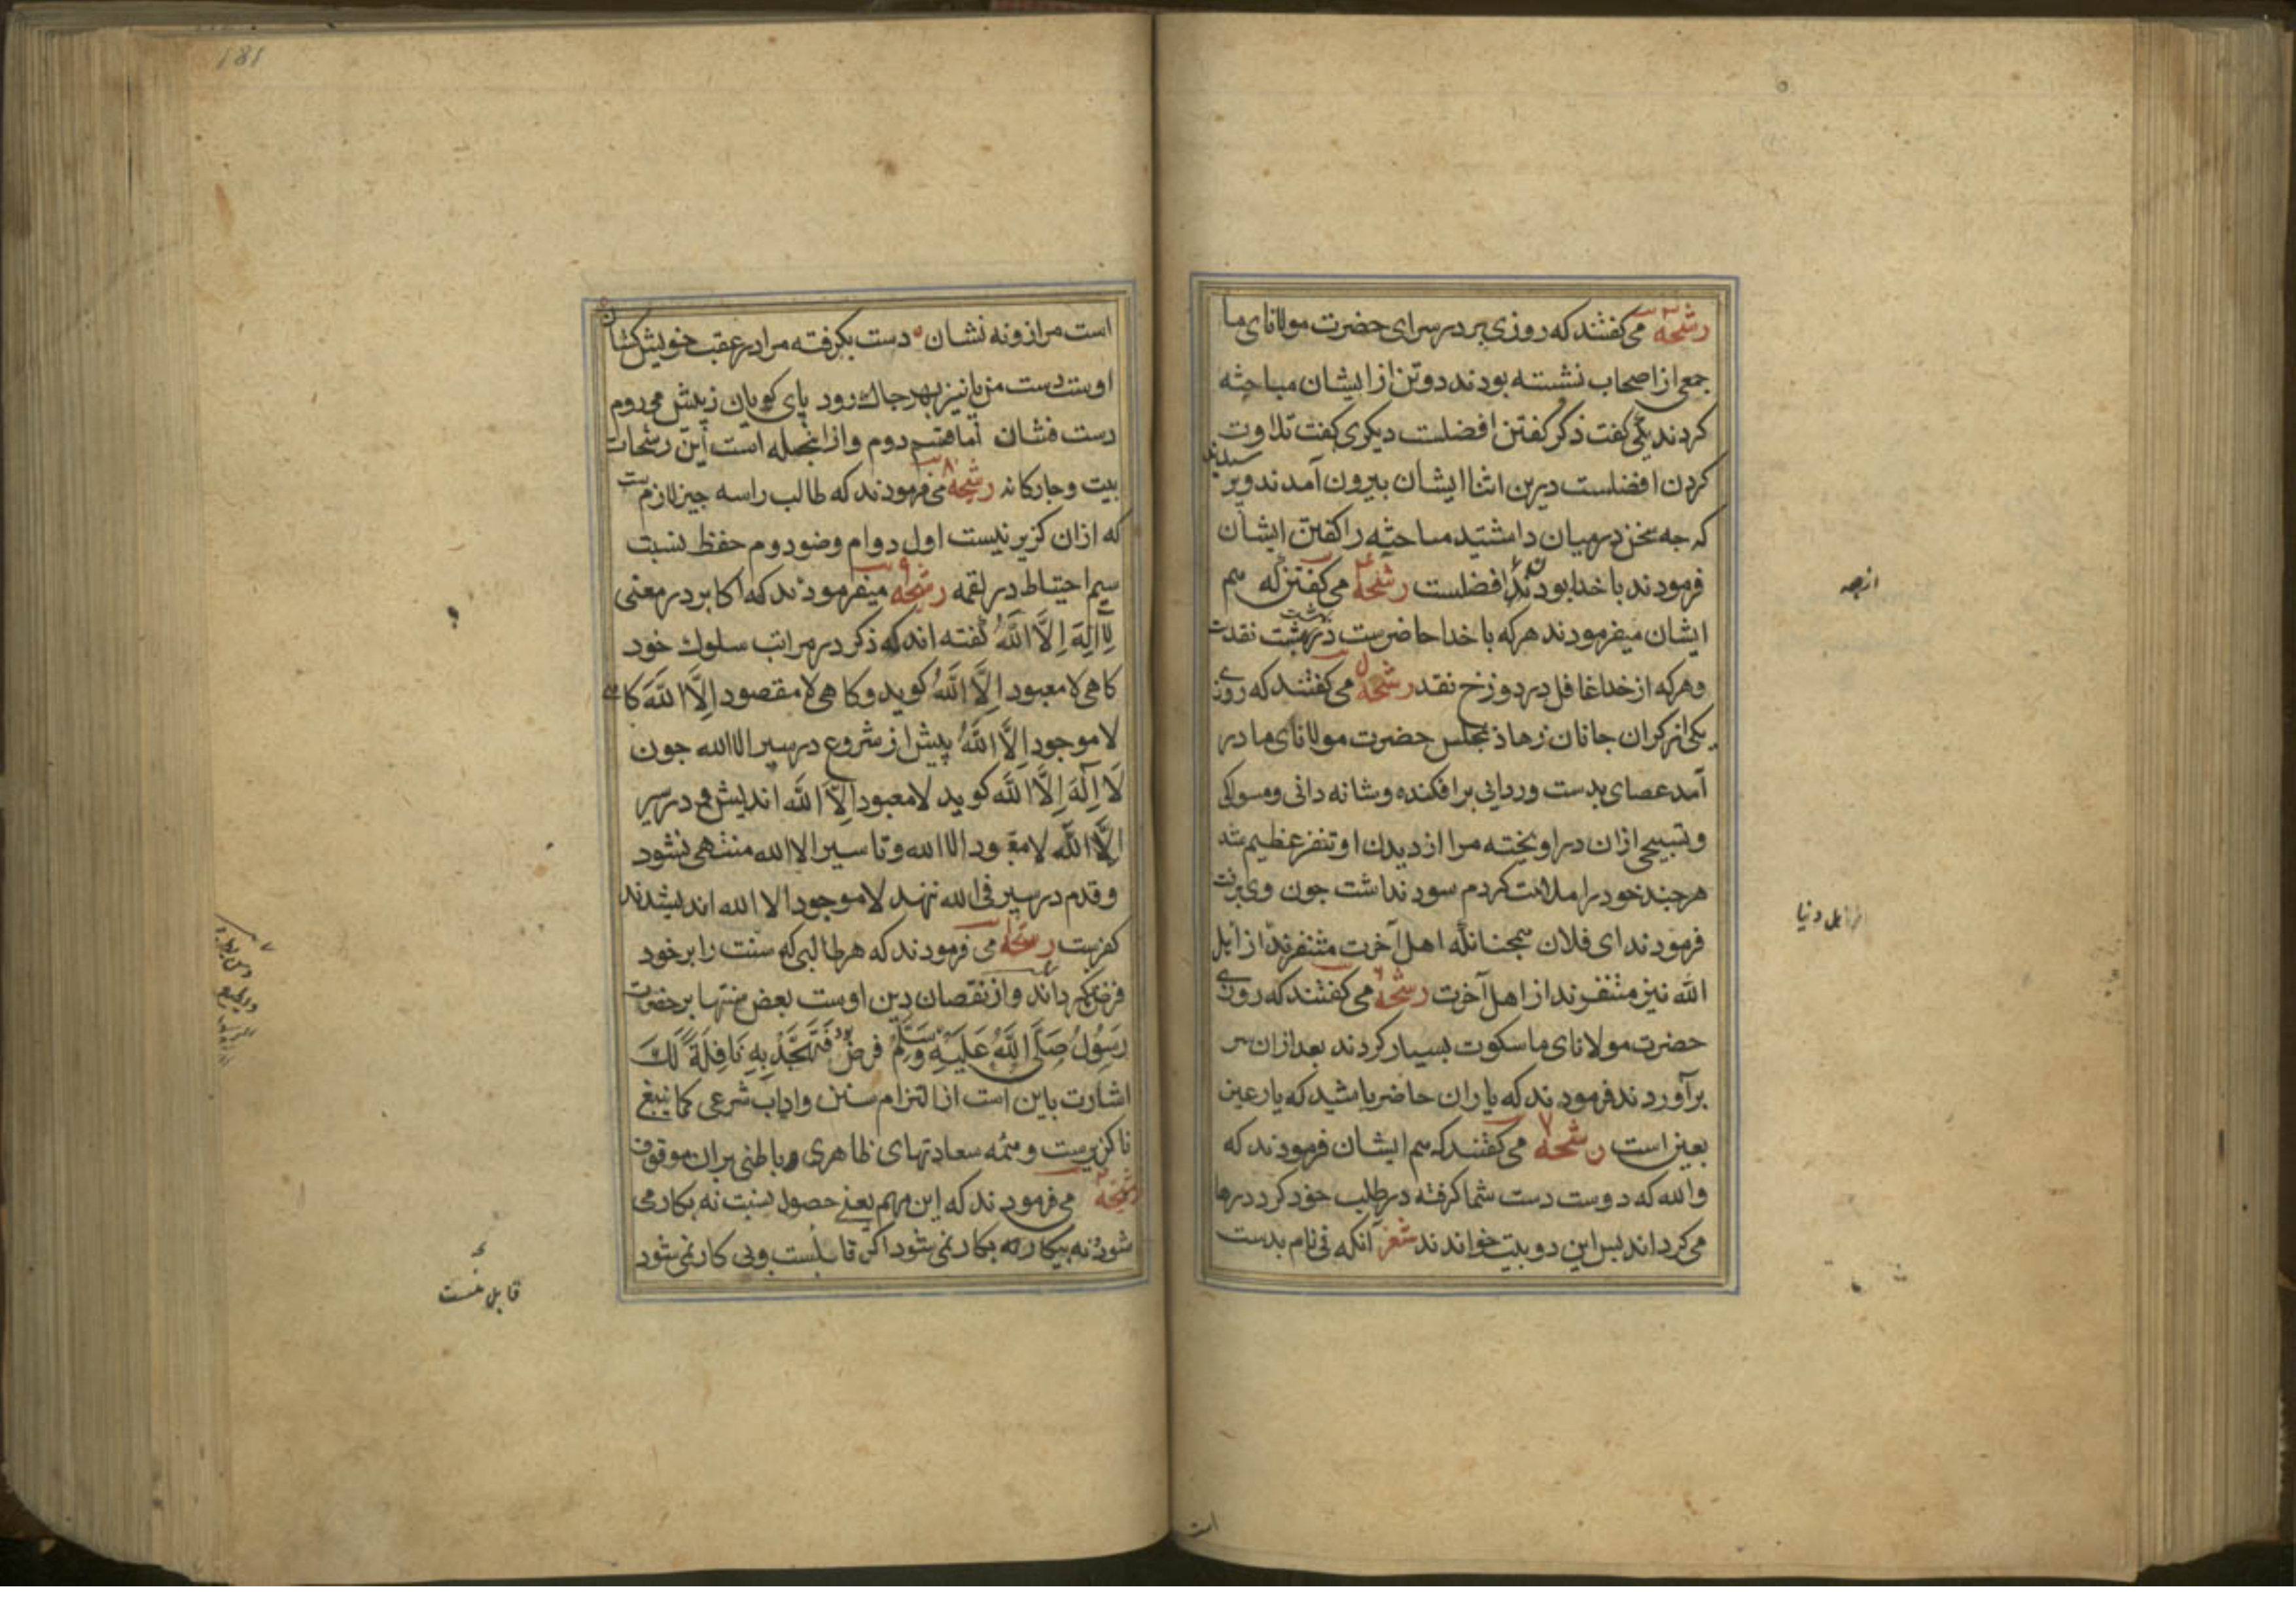 رشحه می کفتند که روزی بر در سرای حضرت مولانای ما
جمعی از اصحاب نشسته بودند دو تن از ایشان مباحثه
کردند یکی کفت ذکر کفتن افضلست دیکری کفت تلاوت
کردن افضلست درین اثنا ایشان بیرون آمدند و پرسیدند
که جه سخن در میان داشتید مباحثه را کفتن ایشان
فرمودند با خدا بودن افضلست رشحه می کفتند که هم
ایشان میفرمودند هرکه با خدا حاضرست در بهشت نقدست
و هرکه از خدا غافل در دوزخ نقد رشحه می کفتند که روزی
یکی از کران جانان زهاد بمجلس حضرت مولانای ما در
آمد عصای بدست و ردایی برافکنده و شانه دانی و مسواکی
و تسبیحی ازان در اویخته مرا از دیدن او تنفر عظیم شد
هرجند خود را ملامت کردم سود نداشت جون وی برفت
فرمودند ای فلان همجنانکه اهل آخرت متنفرند از اهل
الله نیز متنفرند از اهل آخرت رشحه می کفتند که روزی
حضرت مولانای ما سکوت بسیار کردند بعد ازان سر
برآوردند فرمودند که یاران حاضر باشید که یار عین
بعین است رشحه می کفتند که هم ایشان فرمودند که
والله که دوست دست شما کرفته در طلب خود کرد درها
می کرداند پس این دو بیت خواندند شعر آنکه نی نام بدست
از همه
از اهل دنیا
ات
181
است مرا زو نه نشان دست بکرفته مرا در عقب خویش کشان
اوست دست من پا نیز بهر جا که رود پای کوبان ز پیش می روم
دست فشان اما قسم دوم و از انجمله است این رشحات
بیست و جارکانه رشحه می فرمودند که طالب را سه جیز لازم ست
که ازان کزیر نیست اول دوام وضو دوم حفظ نسبت
سیم احتیاط در لقمه رشحه میفرمودند که اکابر در معنی
لَا إِلَهَ إِلَّا اللَّهُ کفته اند که ذکر در مراتب سلوک خود
کاهی لا معبود إِلَّا اللَّهُ کوید و کاهی لا مقصود إِلَّا اللَّهَ کاهی
لا موجود إِلَّا اللَّهُ پیش از شروع در سیر الی الله جون
لَا إِلَهَ إِلَّا اللَّهَ کوید لا معبود إِلَّا اللَّه اندیشد و در سیر
الی اللَّه لا مقصود الا الله و تا سیر الی الله منتهی نشود
و قدم در سیر فی الله ننهد لا موجود الا الله اندیشیدن
کفرست رشحه می فرمودند که هر طالبی که سنت را بر خود
فرض نکرداند و از نقصان دین اوست بعض سنتها بر حضرت
رَسُول صَلَّى اللَّهُ عَلَيْهِ وَسَلَّم فرض بود فَتَهَجَّدْ بِهِ نَافِلَةً لَكَ
اشارت باین است از التزام سنن و اداب شرعی کما ینبغی
ناکزیرست و همه سعادتهای ظاهری و باطنی بران موقوف
رشحه می فرمودند که این مهم یعنی حصول نسبت نه بکار می
شود نه بیکار نه بکار نمی شود اکر قابلست و بی کار نمی شود
قابل نیست